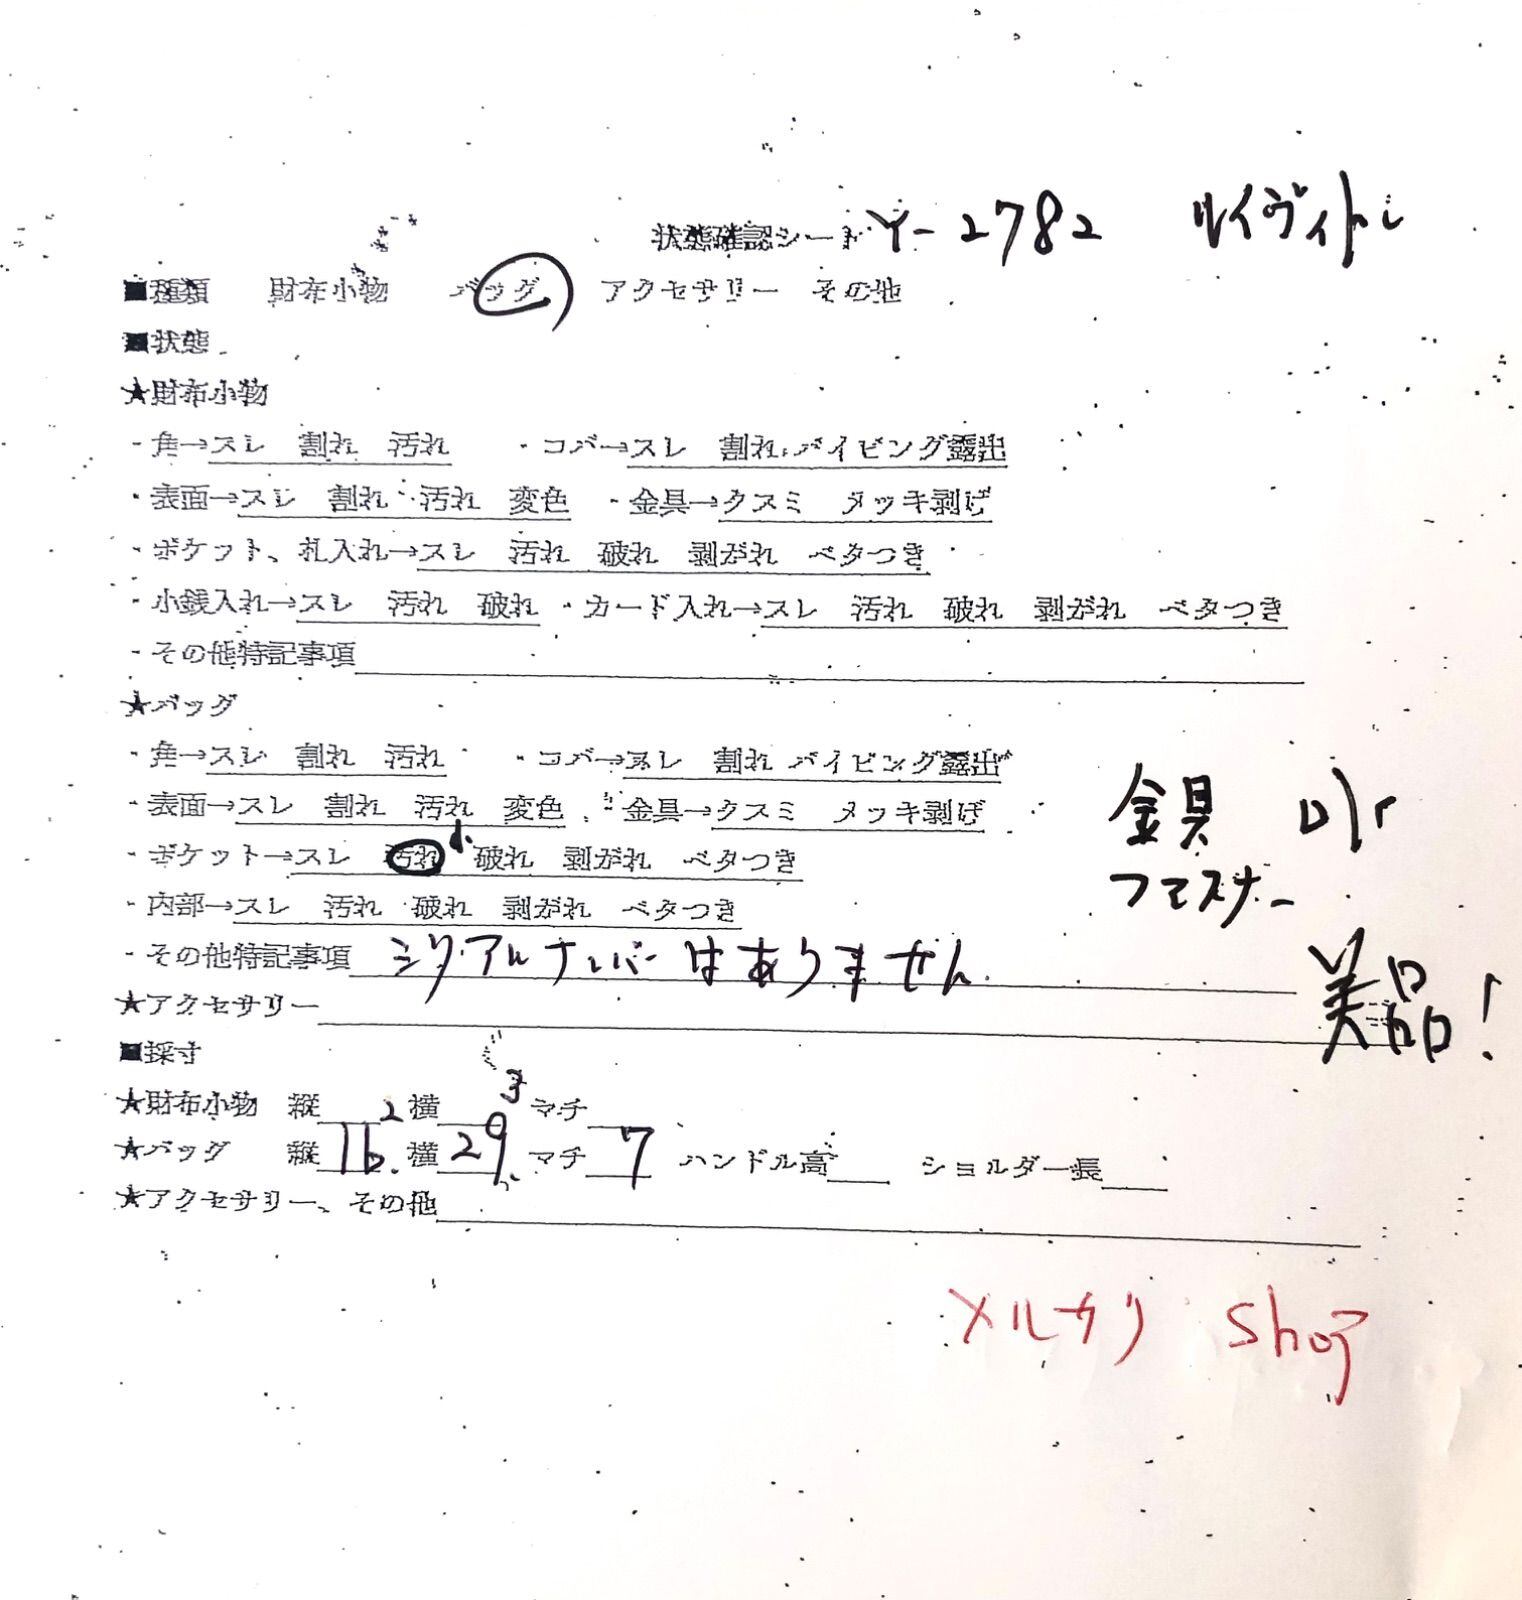 状態確認シート Y-2782 ルイヴィトン
■種類 財布小物 バッグ アクセサリー その他
■状態
★財布小物
・角→スレ 割れ 汚れ ・コバ→スレ 割れ パイピング露出
・表面→スレ 割れ 汚れ 変色 ・金具→クスミ メッキ剥げ
・ポケット、札入れ→スレ 汚れ 破れ 剥がれ ベタつき
・小銭入れ→スレ 汚れ 破れ ・カード入れ→スレ 汚れ 破れ 剥がれ ベタつき
・その他特記事項
★バッグ
・角→スレ 割れ 汚れ ・コバ→スレ 割れ パイピング露出
・表面→スレ 割れ 汚れ 変色 ・金具→クスミ メッキ剥げ 金具
・ポケット→スレ 汚れ 小 破れ 剥がれ ベタつき
ファスナー
・内部→スレ 汚れ 破れ 剥がれ ベタつき
・その他特記事項 シリアルナンバーはありません
美品!
★アクセサリー
■採寸
★財布小物 縦 横 マチ
★バッグ 縦16. 横29. マチ7 ハンドル高 ショルダー長
★アクセサリー、その他
メルカリ Shop